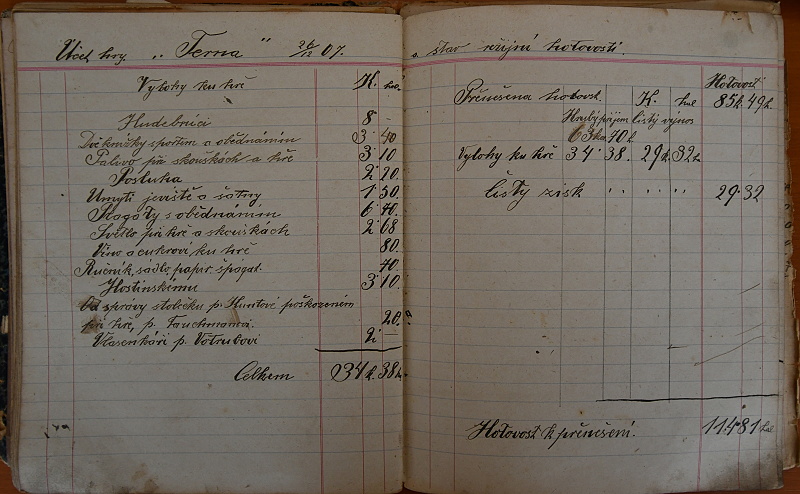 Účet hry „Terna“ 26/12 07.
Výlohy ku hře K. hal.
Hudebníci 8 –
Dvě kněžky sportem a obědnáním 3 40
Palivo při zkouškách a hře 3 10
Posluha 2 20.
Umytí jeviště a šatny 1 50.
Plagáty s obědnáním 6 40.
Světlo při hře a zkouškách 2 68
Víno a cukroví ku hře 80.
Ručník, sádlo, papír. špagat. 40.
Hostinskému 3 10.
Od správy stolečku p. Huntově poškozeném
při hře, p. 20.
Vlasenkáři p. Votrubovi 2 –
Celkem 34 k. 38 h.
a stav režijní hotovosti.
Hotovost
Přenešena hotovost. K. hal 85 k. 49 h.
Hrubý příjem čistý výnos
63 k 70 h
Výlohy ku hře 34 38. 29 k. 32 h.
Čistý zisk " " " " 29 32
Hotovost k přenešení. 114 81 hal